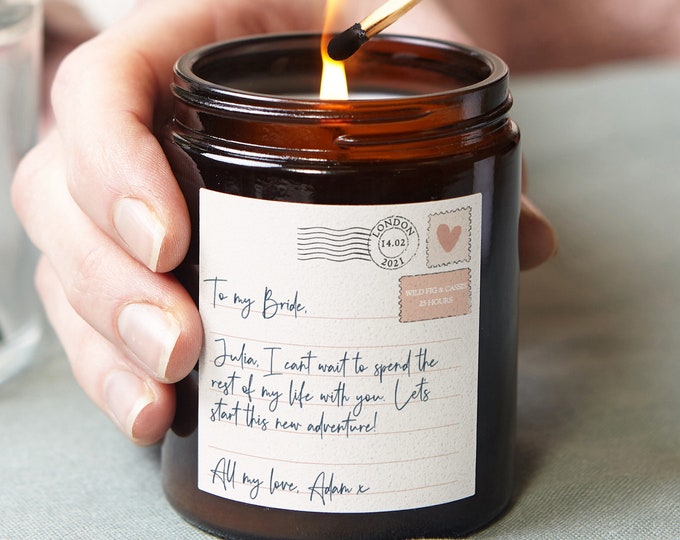 LONDON
14.02
2021
WILD FIG & CASSIS
25 HOURS
To my Bride,
Julia, I cant wait to spend the
rest of my life with you. Lets
start this new adventure!
All my love, Adam x